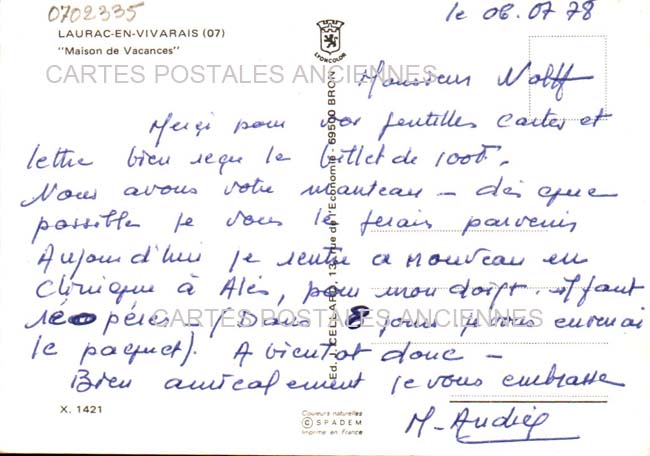 0702335
le 06.07.78
LAURAC-EN-VIVARAIS (07)
"Maison de Vacances"
LYONCOLOR
CARTES POSTALES ANCIENNES
Monsieur Nolff
Merçi pour vos gentilles cartes et
lettre bien reçu le billet de 100F.
Nous avons votre manteau - dès que
possible je vous le ferais parvenir
Aujourd'hui je rentre a nouveau en
Clinique à Alès, pour mon doigt. il faut
péres - (Dans 8 jours je vous enverrai
CARTES POSTALES ANCIENNES
le paquet). A bientot donc -
Bien amicalement je vous embrasse
M-Andrée
X. 1421
Couleurs naturelles
© SPADEM
Imprimé en France
Ed. J. CELLARD, rue de l'Economie - 69500 BRON